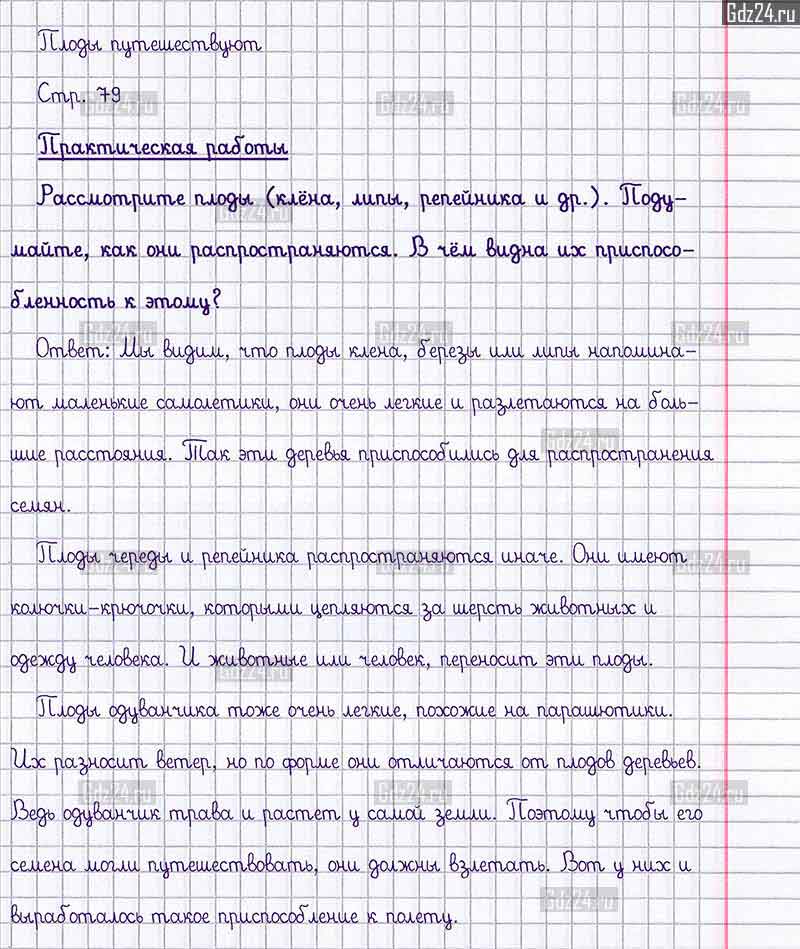 Gdz24.ru
Плоды путешествуют
Стр. 79
Практическая работы
Рассмотрите плоды (клёна, липы, репейника и др.). Поду-
майте, как они распространяются. В чём видна их приспосо-
бленность к этому?
Ответ: Мы видим, что плоды клена, березы или липы напомина-
ют маленькие самолетики, они очень легкие и разлетаются на боль-
шие расстояния. Так эти деревья приспособились для распространения
семян.
Плоды череды и репейника распространяются иначе. Они имеют
колючки-крючочки, которыми цепляются за шерсть животных и
одежду человека. И животные или человек, переносит эти плоды.
Плоды одуванчика тоже очень легкие, похожие на парашютики.
Их разносит ветер, но по форме они отличаются от плодов деревьев.
Ведь одуванчик трава и растет у самой земли. Поэтому чтобы его
семена могли путешествовать, они должны взлетать. Вот у них и
выработалось такое приспособление к полету.